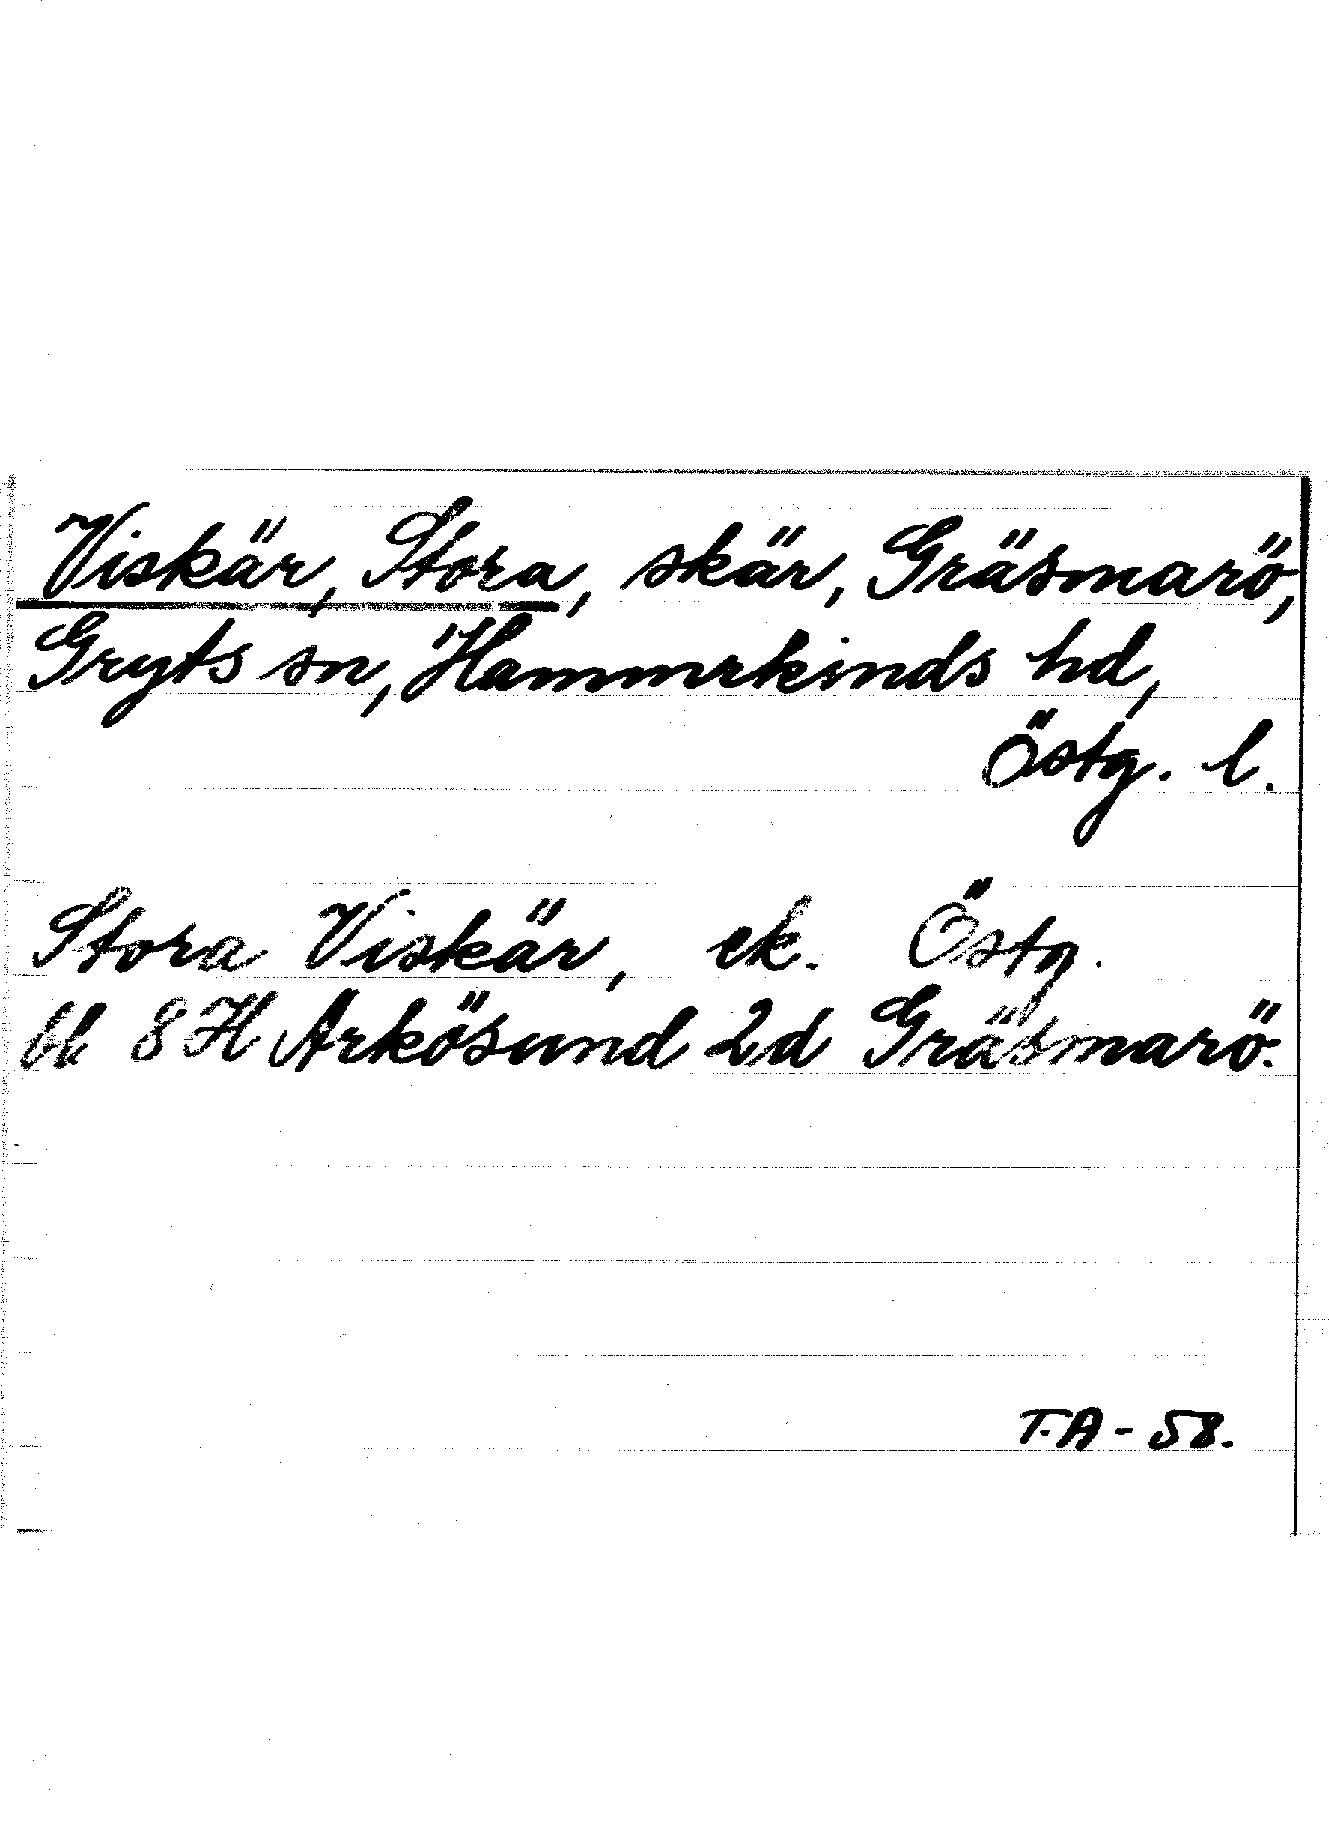 Viskär, Stora, skär, Gräsmarö,
Gryts sn, Hammerkinds hd,
Östg. l.
Stora Viskär, ek. Östg.
bl 8 H Arkösund 2d Gräsmarö.
T.A - 58.